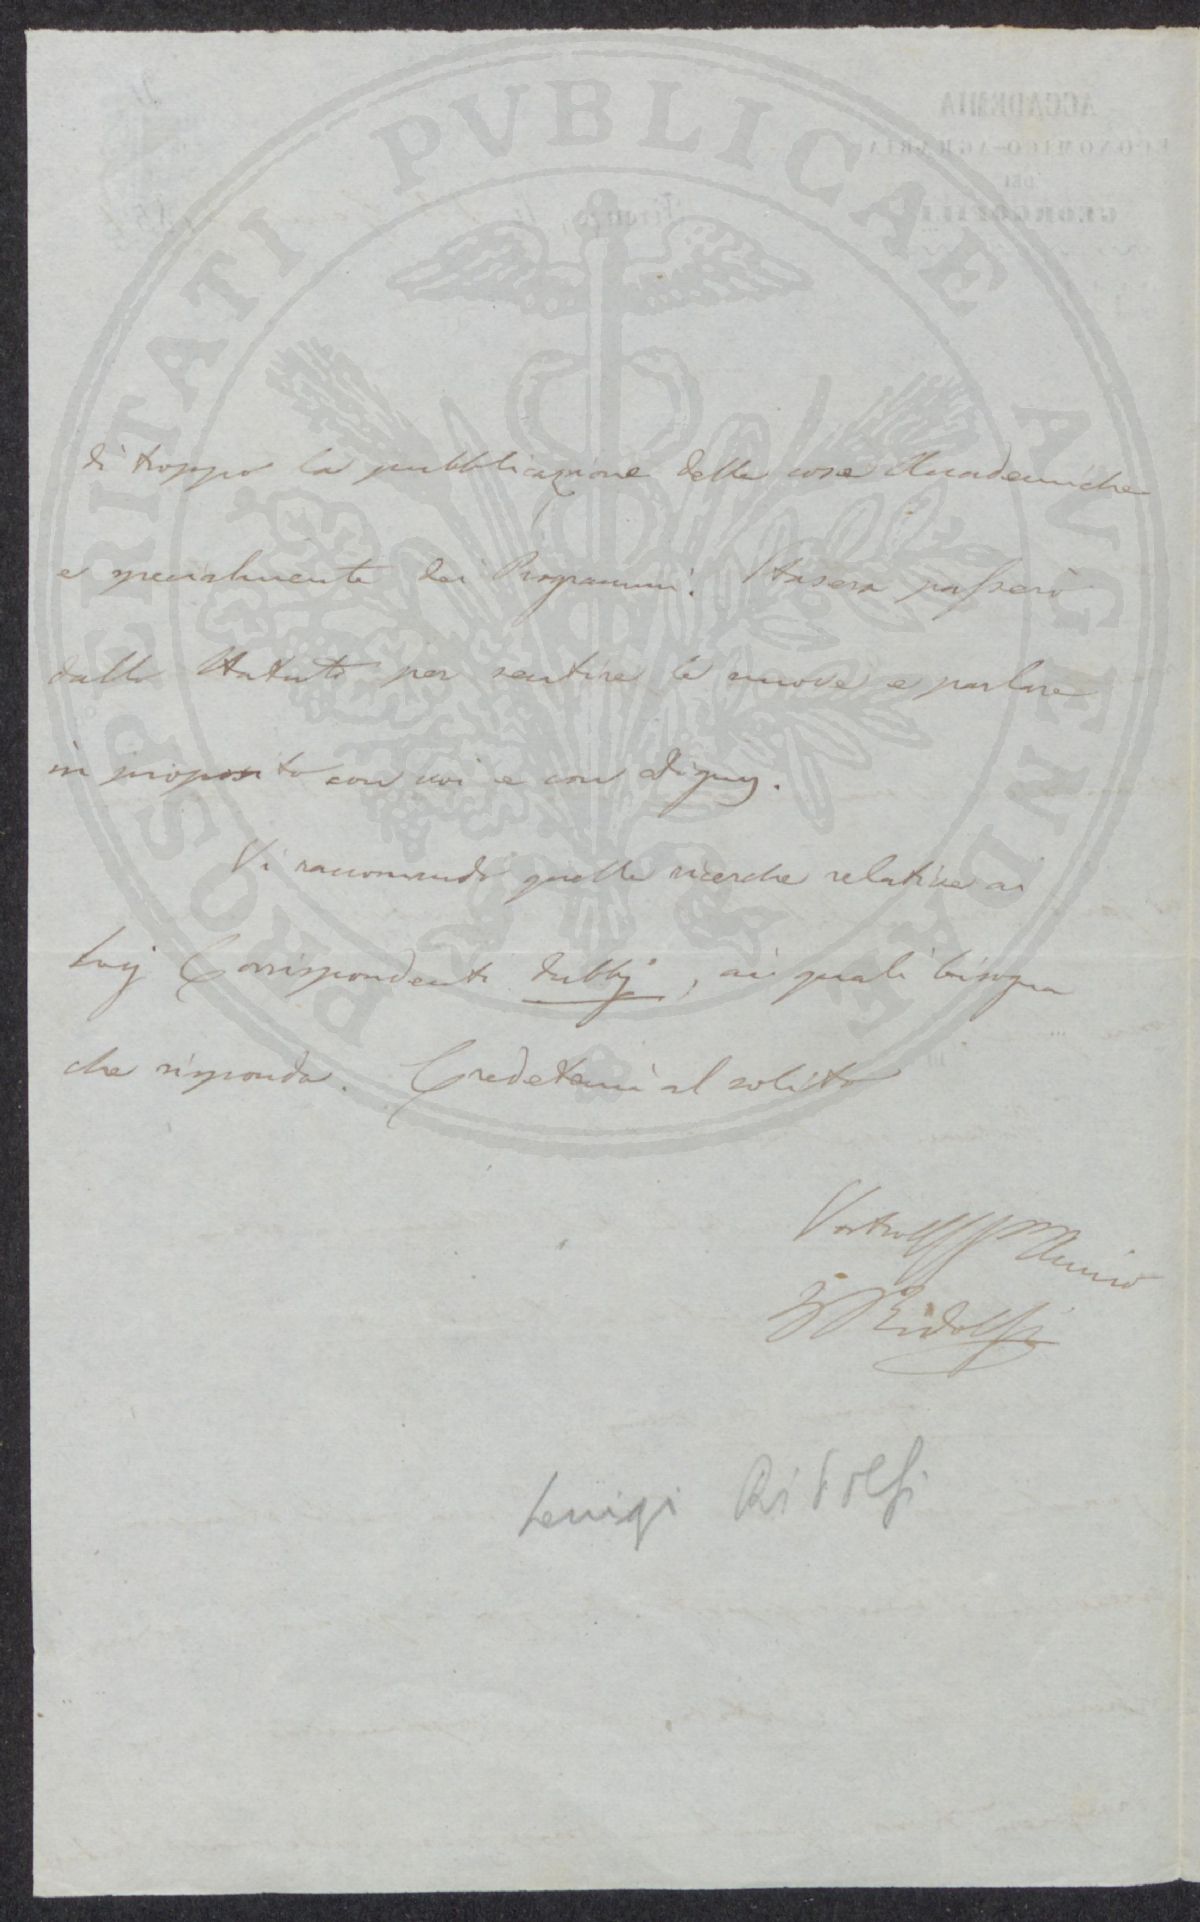 PROSPERITATI PUBLICAE AUGENDAE
ACCADEMIA
ECONOMICO-AGRARIA
DEI
GEORGOFILI
Firenze,
di troppo la pubblicazione delle cose Accademiche
e specialmente dei Programmi. Stasera passerò
dallo Statuto per sentire le nuove e parlare
in proposito con voi e con Digny.
Vi raccomando quelle ricerche relative ai
Soci Corrispondenti dubbj, ai quali bisogna
che risponda. Credetemi al solito
Vostro Amico
Ridolfi
Luigi Ridolfi